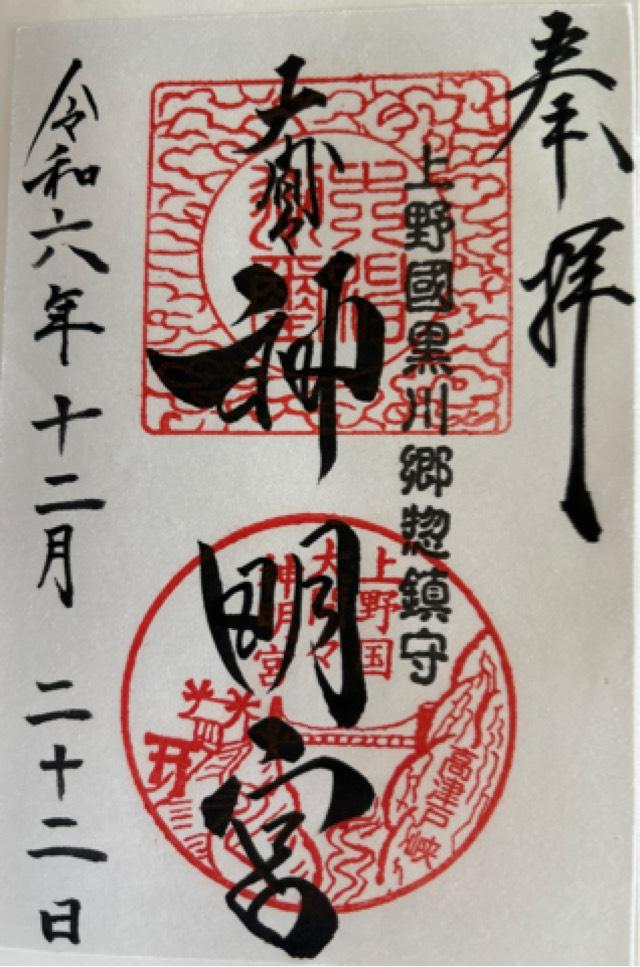 奉拝
上野國黒川郷惣鎮守
大間々神明宮
上野国
大間々
神明宮
高津戸峡
令和六年十二月二十二日